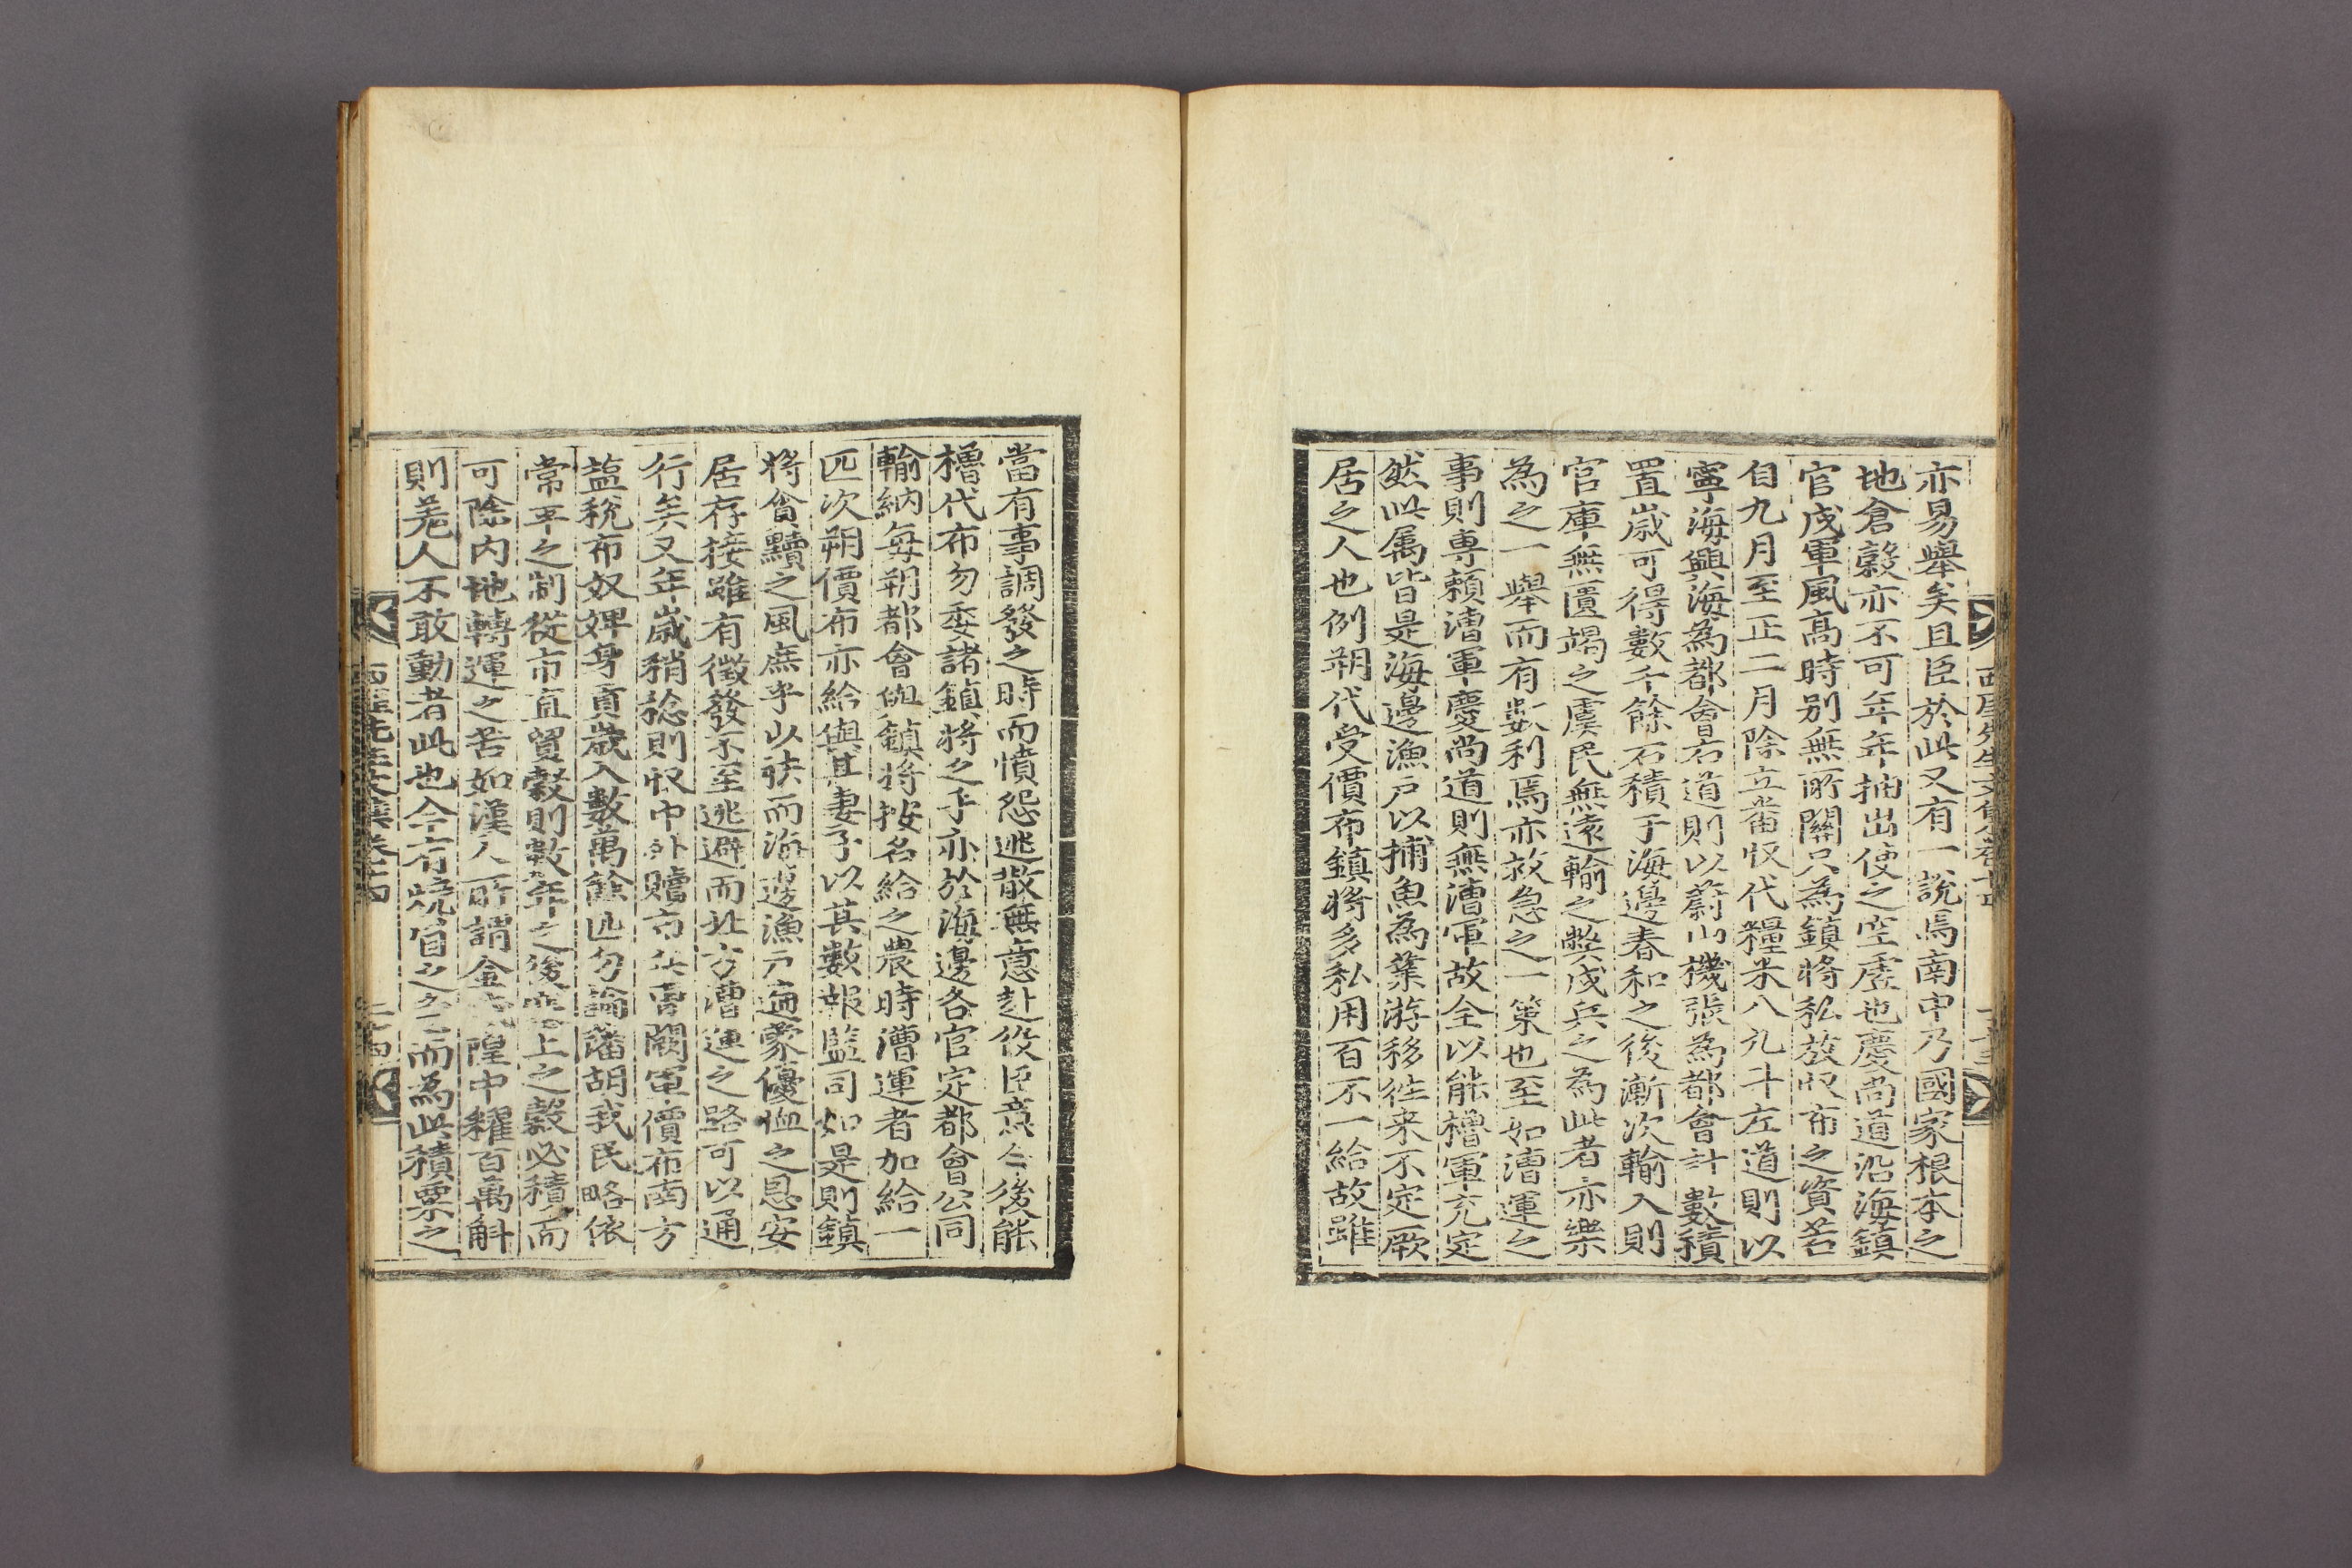 亦易舉矣且臣於此又有一說焉南中乃國家根本之
地倉穀亦不可年年抽出使之空虛也慶尙道沿海鎮
官戍軍風高時別無所關只為鎮將私放收布之資若
自九月至正二月除立番收代糧米八九斗左道則以
寧海興海為都會右道則以蔚山機張為都會計數積
置歲可得數千餘石積于海邊春和之後漸次輸入則
官庫無匱竭之虞民無遠輸之弊戍兵之為此者亦樂
為之一舉而有數利焉亦救急之一策也至如漕運之
事則專賴漕軍慶尙道則無漕軍故全以能櫓軍充定
然此属皆是海邊漁戶以捕魚為業游移徃来不定厥
居之人也例朔代受價布鎮將多私用百不一給故雖
當有事調發之時而憤怨逃散無意赴役臣意今後能
櫓代布勿委諸鎮將之手亦於海邊各官定都會公同
輸納每朔都會與鎮將按名給之農時漕運者加給一
匹次朔價布亦給與其妻子以其數報監司如是則鎮
將貪黷之風庶乎以袪而海邊漁戶遍蒙優恤之恩安
居存接雖有徵發不至逃避而北方漕運之路可以通
行矣又年歲稍稔則收中外贖布步兵闕軍價布南方
塩稅布奴婢身貢歲入數萬餘匹勿論藩胡我民略依
常平之制從市直買穀則數年之後塞上之穀必積而
可除内地轉運之苦如漢人所謂金城湟中糴百萬斛
則羌人不敢動者此也今有燒眉之急而為此積粟之
西厓先生文集卷十四
西厓先生文集卷十四
二十四